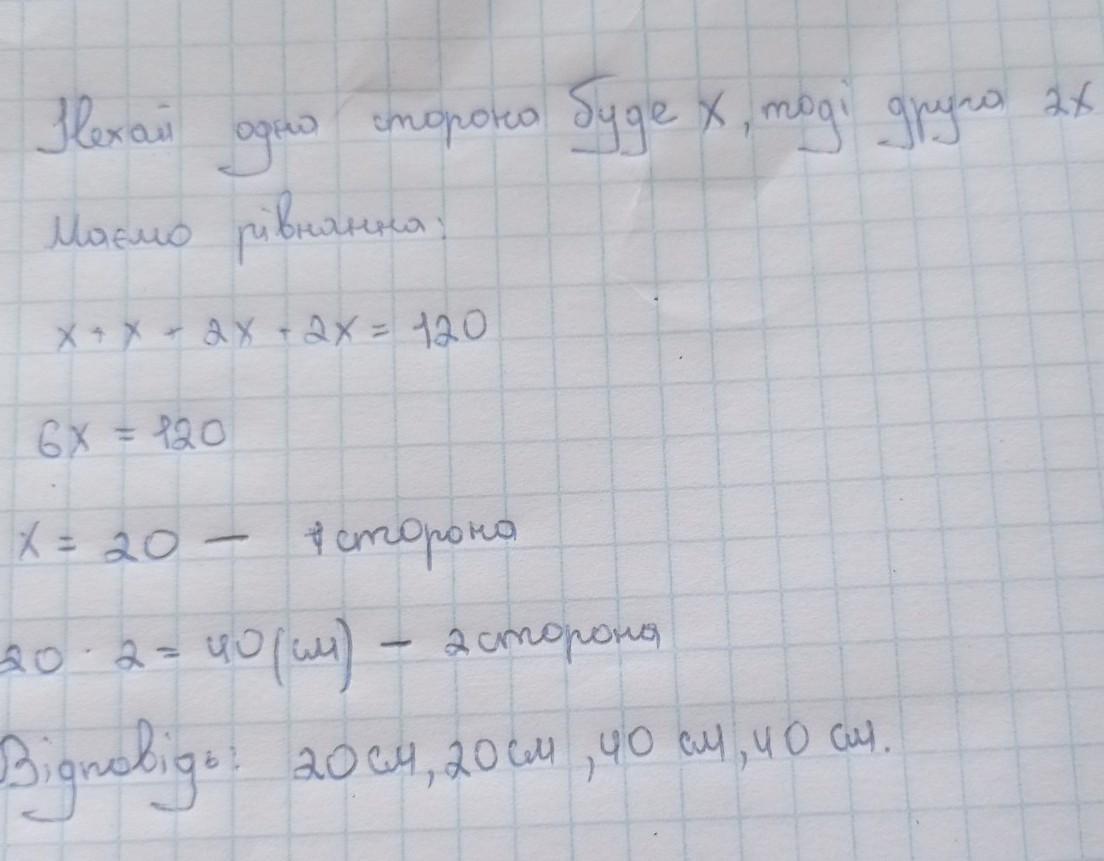 Нехай одна сторона буде x, тоді друга 2x
Маємо рівняння:
x + x + 2x + 2x = 120
6x = 120
x = 20 — 1 сторона
20 · 2 = 40 (см) — 2 сторона
Відповідь: 20 см, 20 см, 40 см, 40 см.